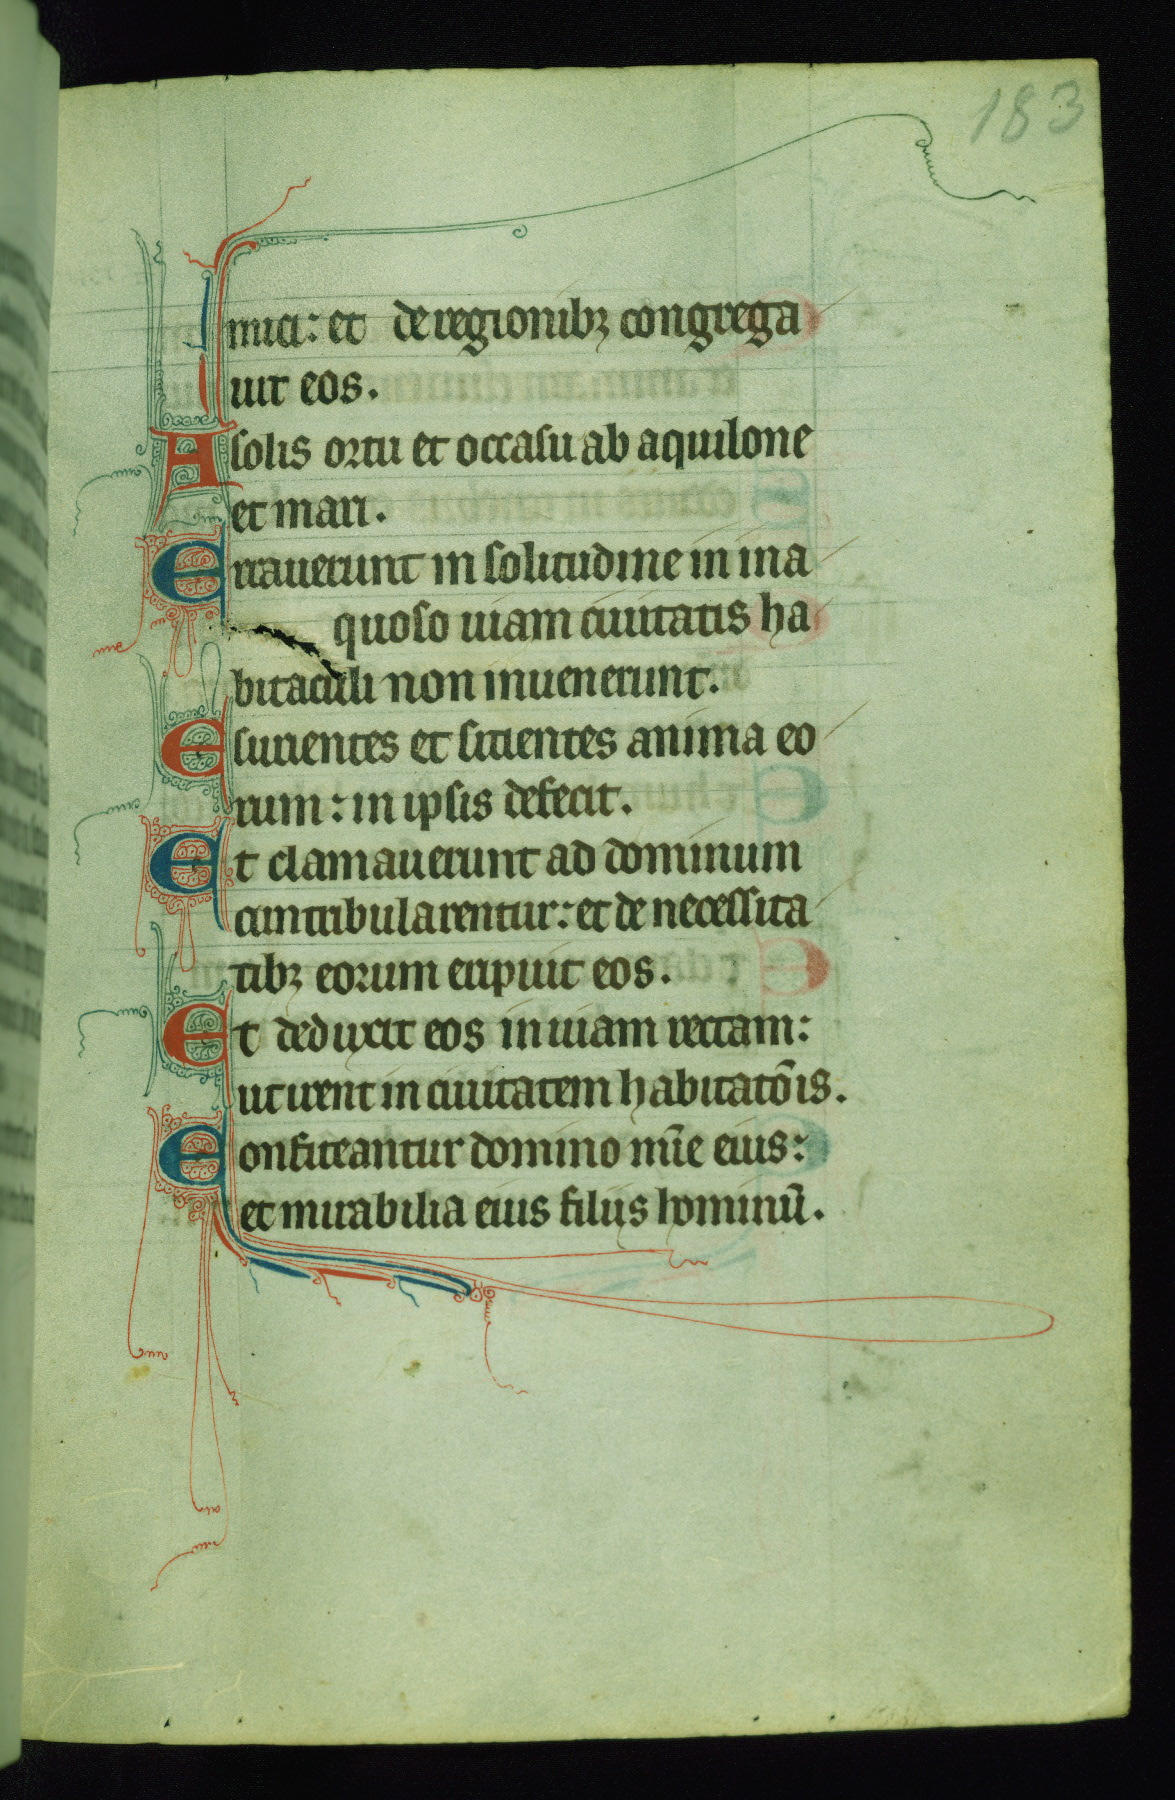 183
mici: et de regionibꝫ congrega
uit eos.
A solis ortu et occasu ab aquilone
et mari.
Errauerunt in solitudine in ina
quoso uiam ciuitatis ha
bitaculi non inuenerunt.
Esurientes et sitientes anima eo
rum: in ipsis defecit.
Et clamauerunt ad dominum
cum tribularentur: et de necessita
tibꝫ eorum eripuit eos.
Et deduxit eos in uiam rectam:
ut irent in ciuitatem habitatōis.
Confiteantur domino mīe eius:
et mirabilia eius filijs hominū.